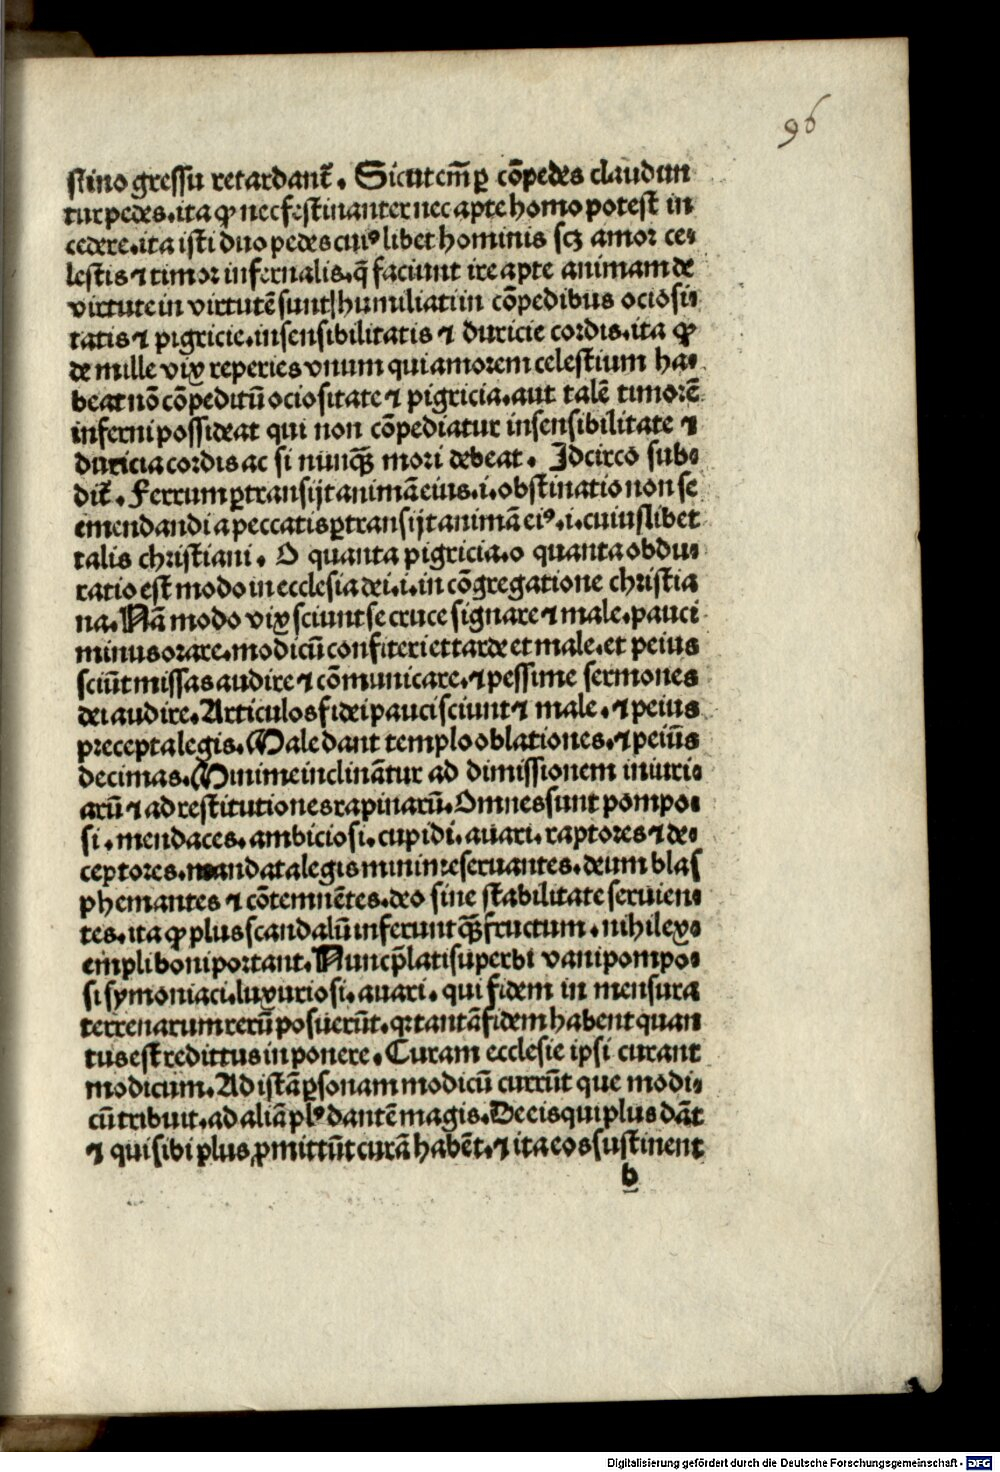 96
stino gressu retardant̃. Sicut em̃ ꝑ cõpedes claudun
tur pedes.ita ꝙ nec festinanter nec apte homo potest in
cedere.ita isti duo pedes cuiꝰlibet hominis scꝫ amor ce-
lestis ⁊ timor infernalis.q̃ faciunt ire apte animam de
virtute in virtutẽ sunt humiliati in cõpedibus ociosi-
tatis ⁊ pigricie.insensibilitatis ⁊ duricie cordis.ita ꝙ
de mille vix reperies vnum qui amorem celestium ha-
beat nõ cõpeditũ ociositate ⁊ pigricia.aut talẽ timorẽ
inferni possideat qui non cõpediatur insensibilitate ⁊
duricia cordis ac si nunqꝫ mori debeat. Idcirco sub-
dit̃. Ferrum ꝑtransijt animã eius.i.obstinatio non se
emendandi a peccatis ꝑtransijt animã eiꝰ.i.cuiuslibet
talis christiani. O quanta pigricia.o quanta obdu-
ratio est modo in ecclesia dei.i.in cõgregatione christia
na.Nã modo vix sciunt se cruce signare ⁊ male.pauci
minus orare.modicũ confiteri et tarde et male.et peius
sciũt missas audire ⁊ cõmunicare.⁊ pessime sermones
dei audire.Articulos fidei pauci sciunt ⁊ male.⁊ peius
precepta legis.Male dant templo oblationes.⁊ peiũs
decimas.Minime inclinãtur ad dimissionem iniuri-
arũ ⁊ ad restitutiones rapinarũ.Omnes sunt pompo-
si.mendaces.ambiciosi.cupidi.auari.raptores ⁊ de-
ceptores.mandata legis minime seruantes.deum blas
phemantes ⁊ cõtemnẽtes.deo sine stabilitate seruien-
tes.ita ꝙ plus scandalũ inferunt qꝫ fructum.nihil ex-
empli boni portant.Nunc p̃lati superbi vani pompo-
si symoniaci.luxuriosi.auari.qui fidem in mensura
terrenarum rerũ posuerũt.qꝛ tantã fidem habent quan
tus est redittus in ponere.Curam ecclesie ipsi curant
modicum.Ad istã ꝑsonam modicũ currũt que modi-
cũ tribuit.ad aliã plꝰ dantẽ magis.De eis qui plus dãt
⁊ qui sibi plus ꝓmittũt curã habẽt.⁊ ita eos sustinent
b
Digitalisierung gefördert durch die Deutsche Forschungsgemeinschaft - DFG